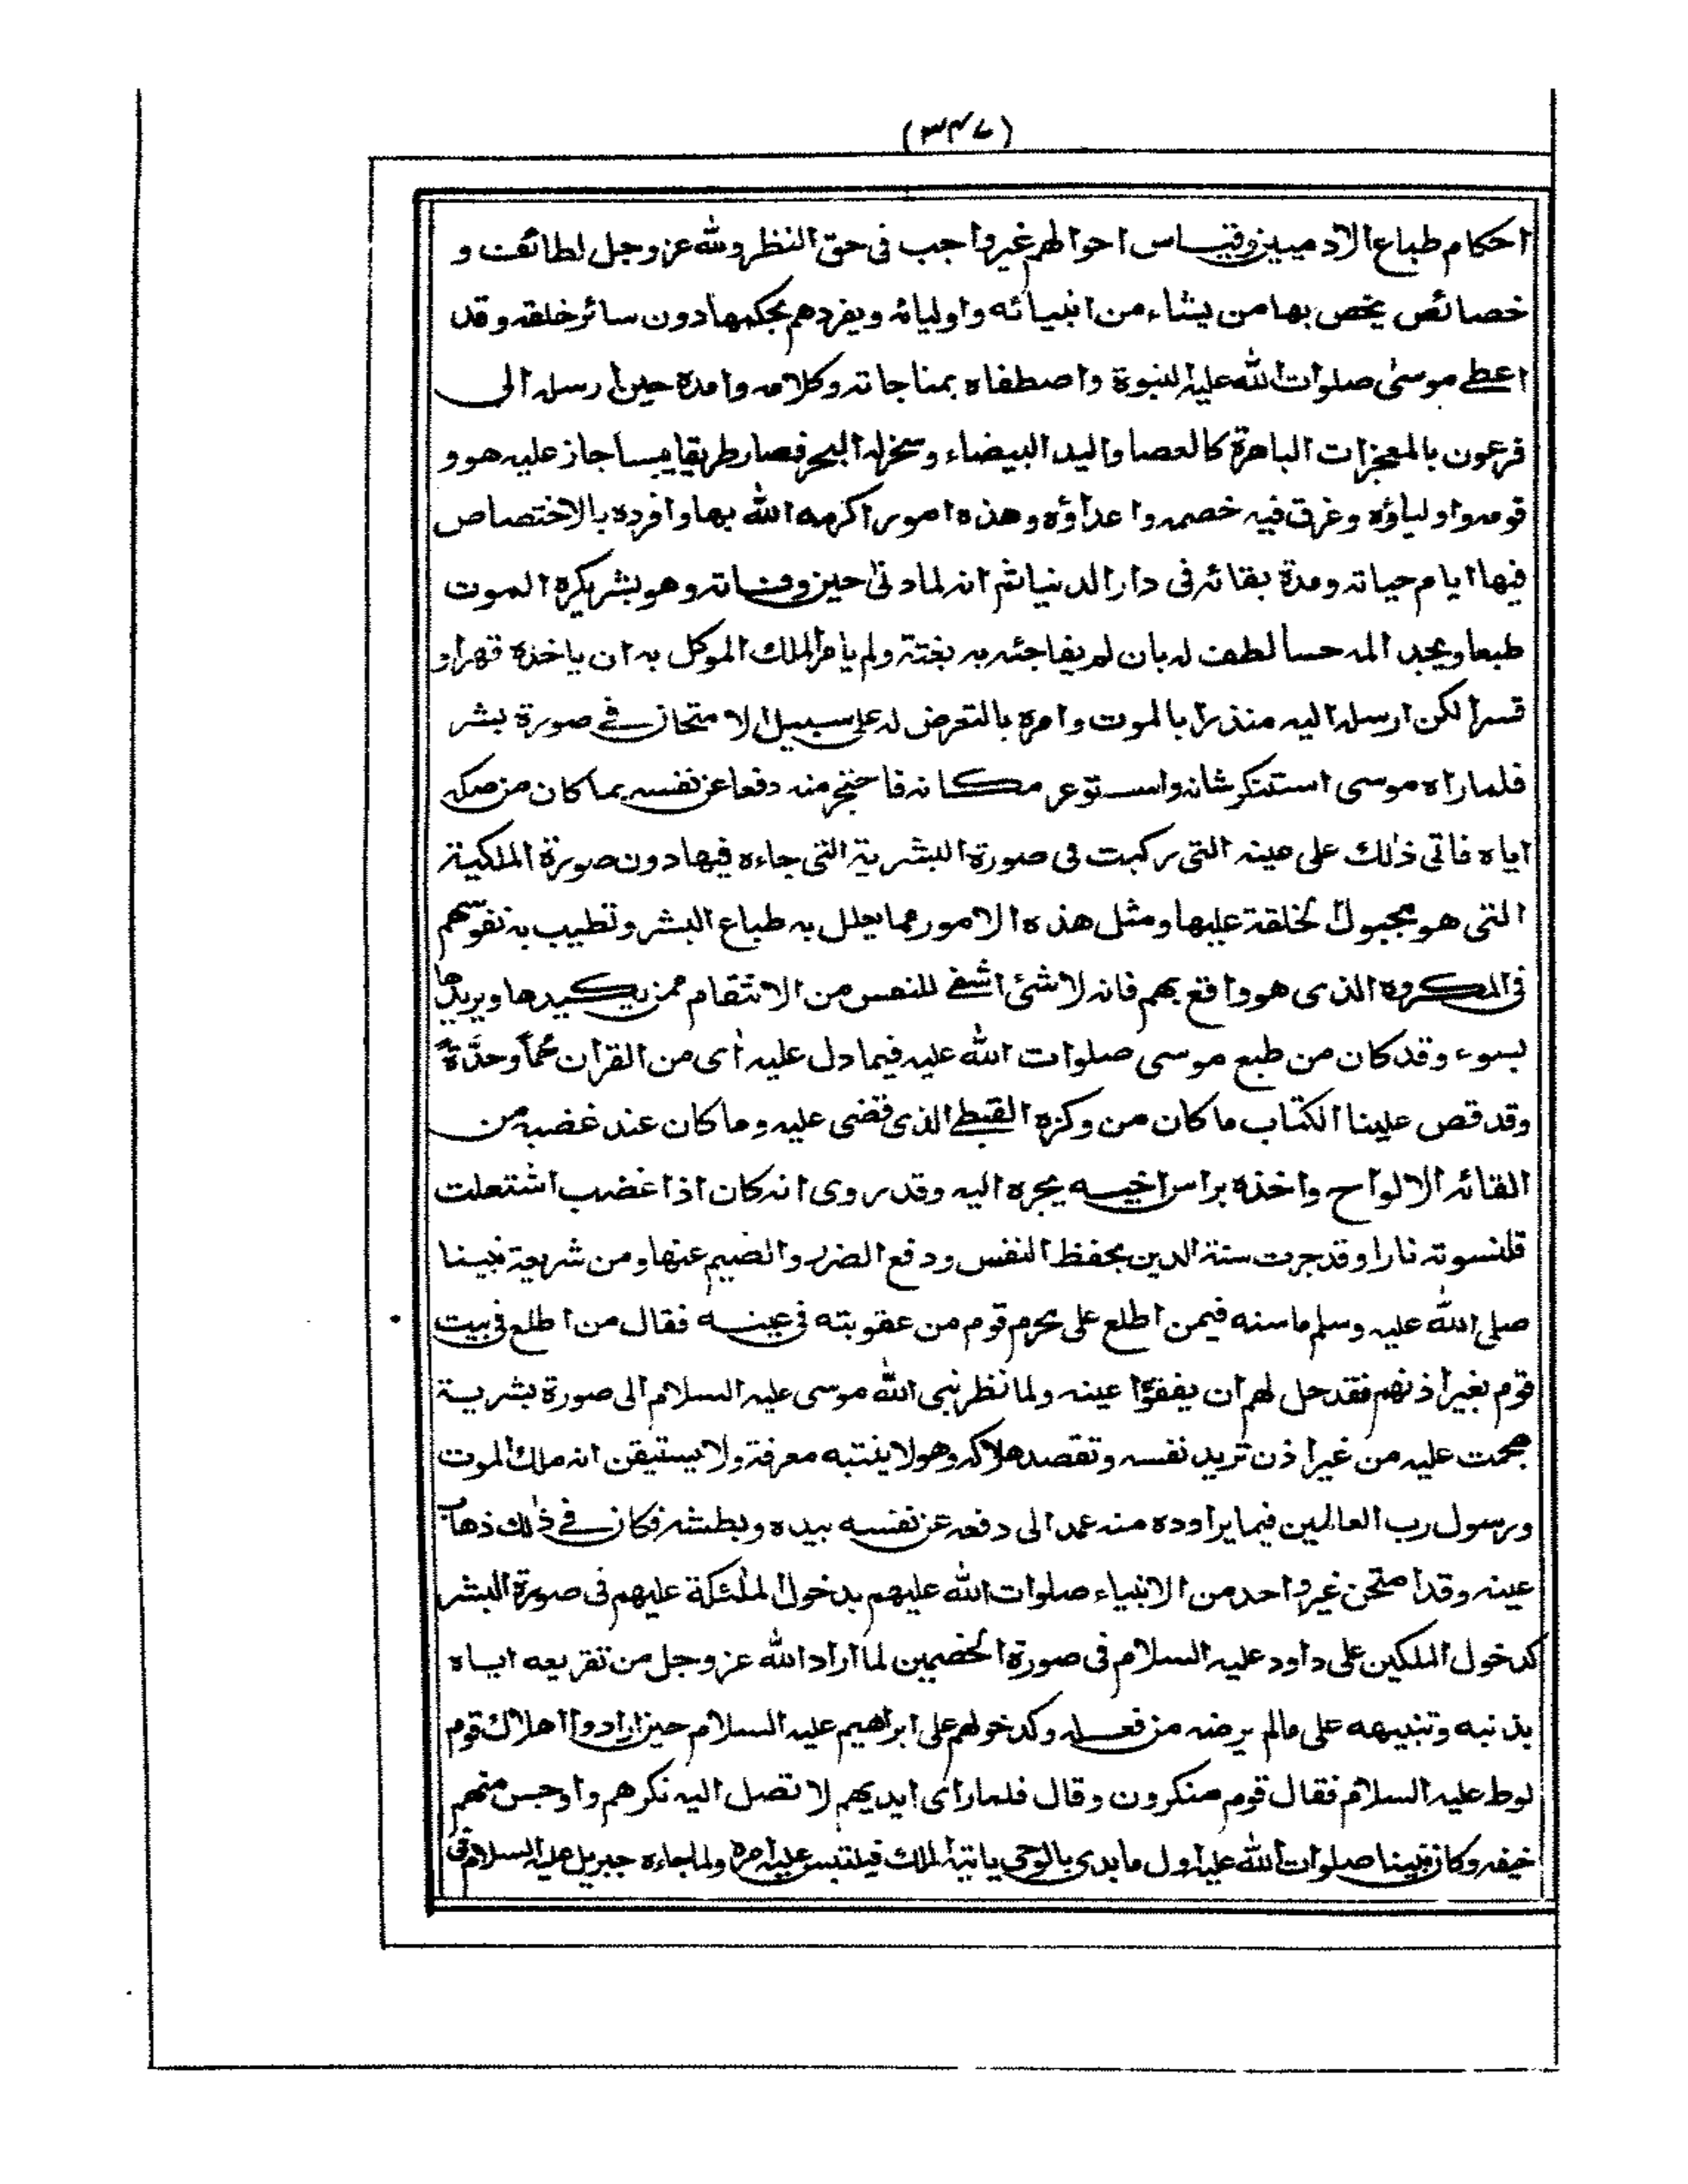 (۳۴۷)
احكام طباع الادميين وقياس احوالهم غير واجب فى حق النظر ولله عز وجل لطائف و
خصائص يخص بها من يشاء من انبيائه واوليائه ويفردهم بحكمها دون سائر خلقه وقد
اعطى موسىٰ صلوات الله عليه النبوة واصطفاه بمناجاته وكلامه وامده حين ارسله الى
فرعون بالمعجزات الباهرة كالعصا واليد البيضاء وسخر له البحر فصار طريقا يبسا جاز عليه هو و
قومه واولياؤه وغرق فيه خصمه واعداؤه وهذه امور اكرمه الله بها وافرده بالاختصاص
فيها ايام حياته ومدة بقائه فى دار الدنيا ثم انه لما دنىٰ حين وفاته وهو بشر يكره الموت
طبعا ويجد المه حسا لطف له بان لم يفاجئه به بغتة ولم يامر الملك الموكل به ان ياخذه قهرا و
قسرا لكن ارسله اليه منذرا بالموت وامره بالتعرض له على سبيل الامتحان فى صورة بشر
فلما راه موسى استنكر شانه واستوعر مكانه فاحتجر منه دفعا عن نفسه بما كان من صكه
اياه فاتى ذٰلك على عينه التى ركبت فى صورة البشرية التى جاءه فيها دون صورة الملكية
التى هو مجبول الخلقة عليها ومثل هذه الامور مما يعلل به طباع البشر وتطيب به نفوسهم
فى المكروه الذى هو واقع بهم فانه لا شئ اشفى للنفس من الانتقام ممن يكيدها ويريدها
بسوء وقد كان من طبع موسى صلوات الله عليه فيما دل عليه أى من القران حُمّاً وحدَّةً
وقد قص علينا الكتاب ما كان من وكزه القبطى الذى قضى عليه وما كان عند غضبه من
القائه الالواح واخذه براس اخيه يجره اليه وقد روى انه كان اذا غضب اشتعلت
قلنسوته نارا وقد جرت سنة الدين بحفظ النفس ودفع الضرر والضيم عنها ومن شريعة نبينا
صلى الله عليه وسلم ما سنه فيمن اطلع على محرم قوم من عقوبته فى عينه فقال من اطلع فى بيت
قوم بغير اذنهم فقد حل لهم ان يفقؤا عينه ولما نظر نبى الله موسى عليه السلام الى صورة بشرية
هجمت عليه من غير اذن تريد نفسه وتقصد هلاكه وهو لا ينتبه معرفة ولا يستيقن انه ملك الموت
ورسول رب العالمين فيما يراوده منه عمد الى دفعه عن نفسه بيده وبطشه فكان فى ذٰلك ذهاب
عينه وقد امتحن غير واحد من الانبياء صلوات الله عليهم بدخول الملٰئكة عليهم فى صورة البشر
كدخول الملكين على داود عليه السلام فى صورة الخصمين لما اراد الله عز وجل من تقريعه اياه
بذنبه وتنبيهه على مالم يرضه من فعله وكدخولهم على ابراهيم عليه السلام حين ارادوا اهلاك قوم
لوط عليه السلام فقال قوم منكرون وقال فلما راى ايديهم لا تصل اليه نكرهم واوجس منهم
خيفه وكان نبينا صلوات الله عليه اول ما بدى بالوحى ياتيه الملك فيلتبس عليه امره ولما جاءه جبريل عليه السلام فى